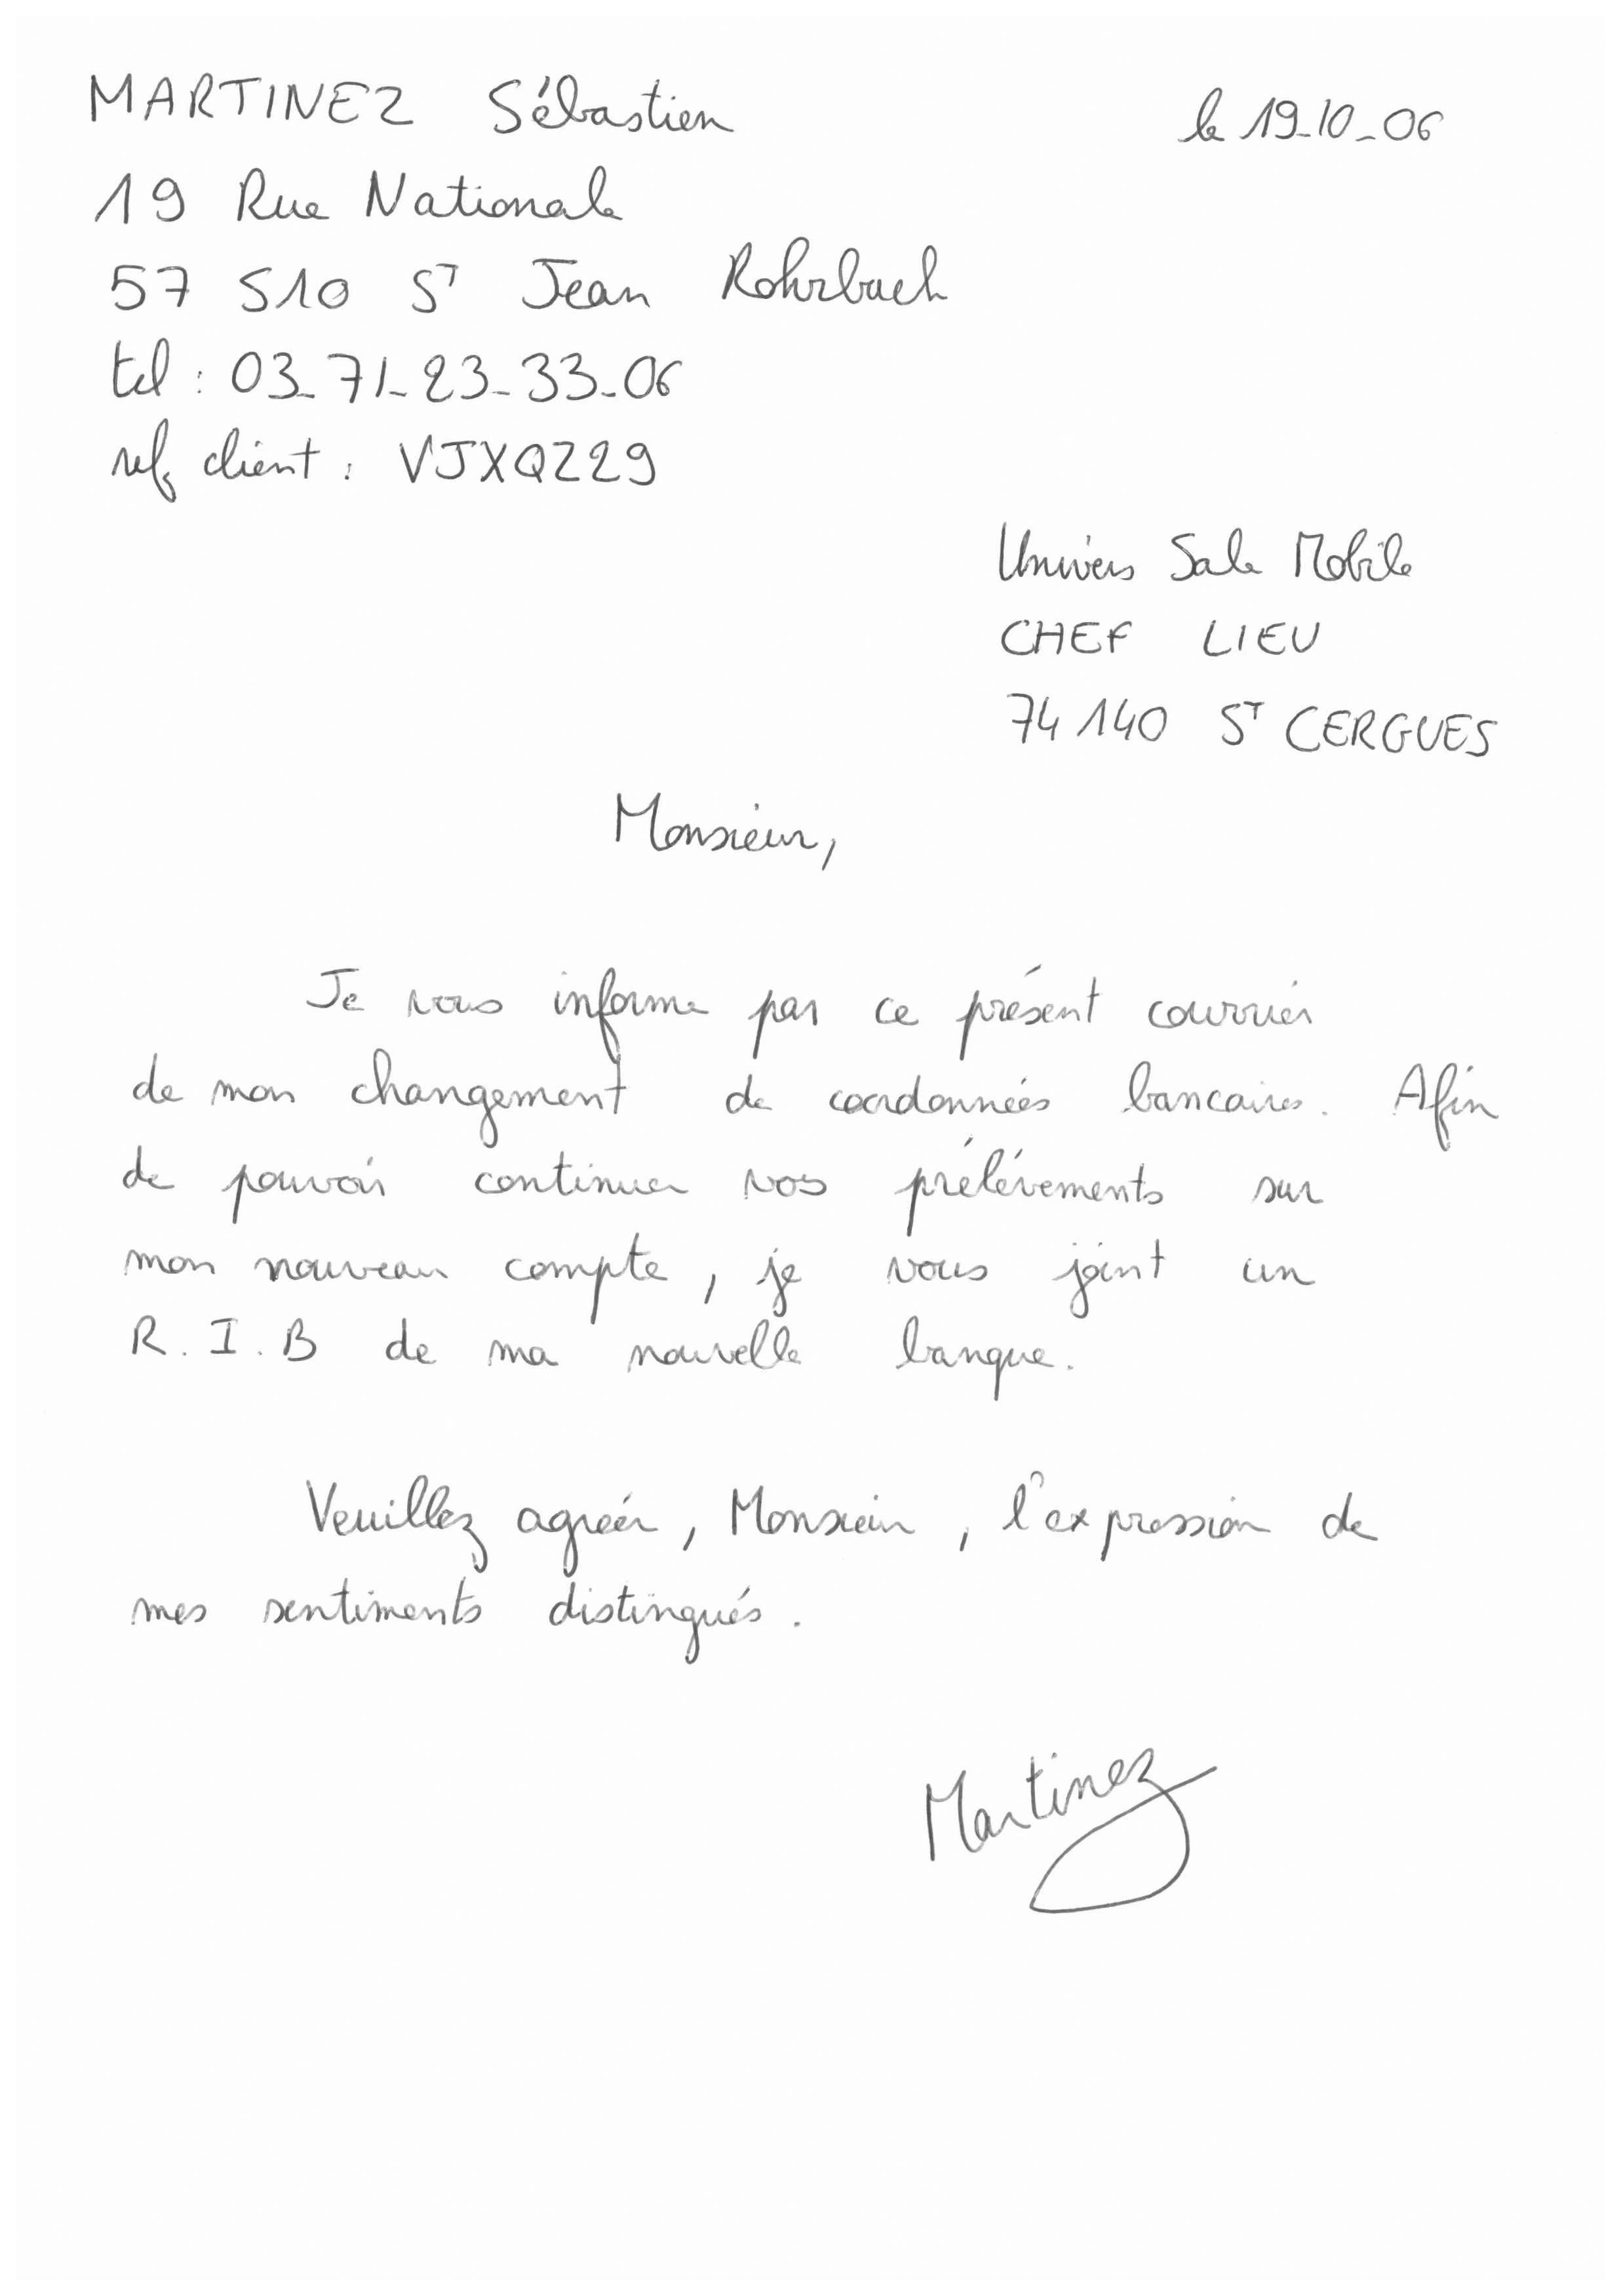 MARTINEZ Sébastien
le 19-10-06
19 Rue Nationale
57 510 St Jean Rohrbach
tel : 03-71-23-33-06
ref client : VJXQZ29
Univers Sale Mobile
CHEF LIEU
74 140 ST CERGUES
Monsieur,
Je vous informe par ce présent courrier
de mon changement de coordonnées bancaires. Afin
de pouvoir continuer vos prélévements sur
mon nouveau compte, je vous joint un
R.I.B de ma nouvelle banque.
Veuillez agréer, Monsieur, l'expression de
mes sentiments distingués.
Martinez